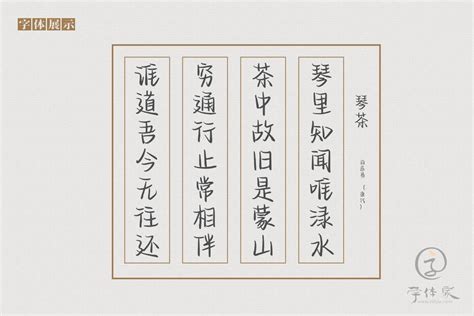 字体展示
琴茶
白居易（唐代）
琴里知闻唯渌水
茶中故旧是蒙山
穷通行止常相伴
谁道吾今无往还
字体家